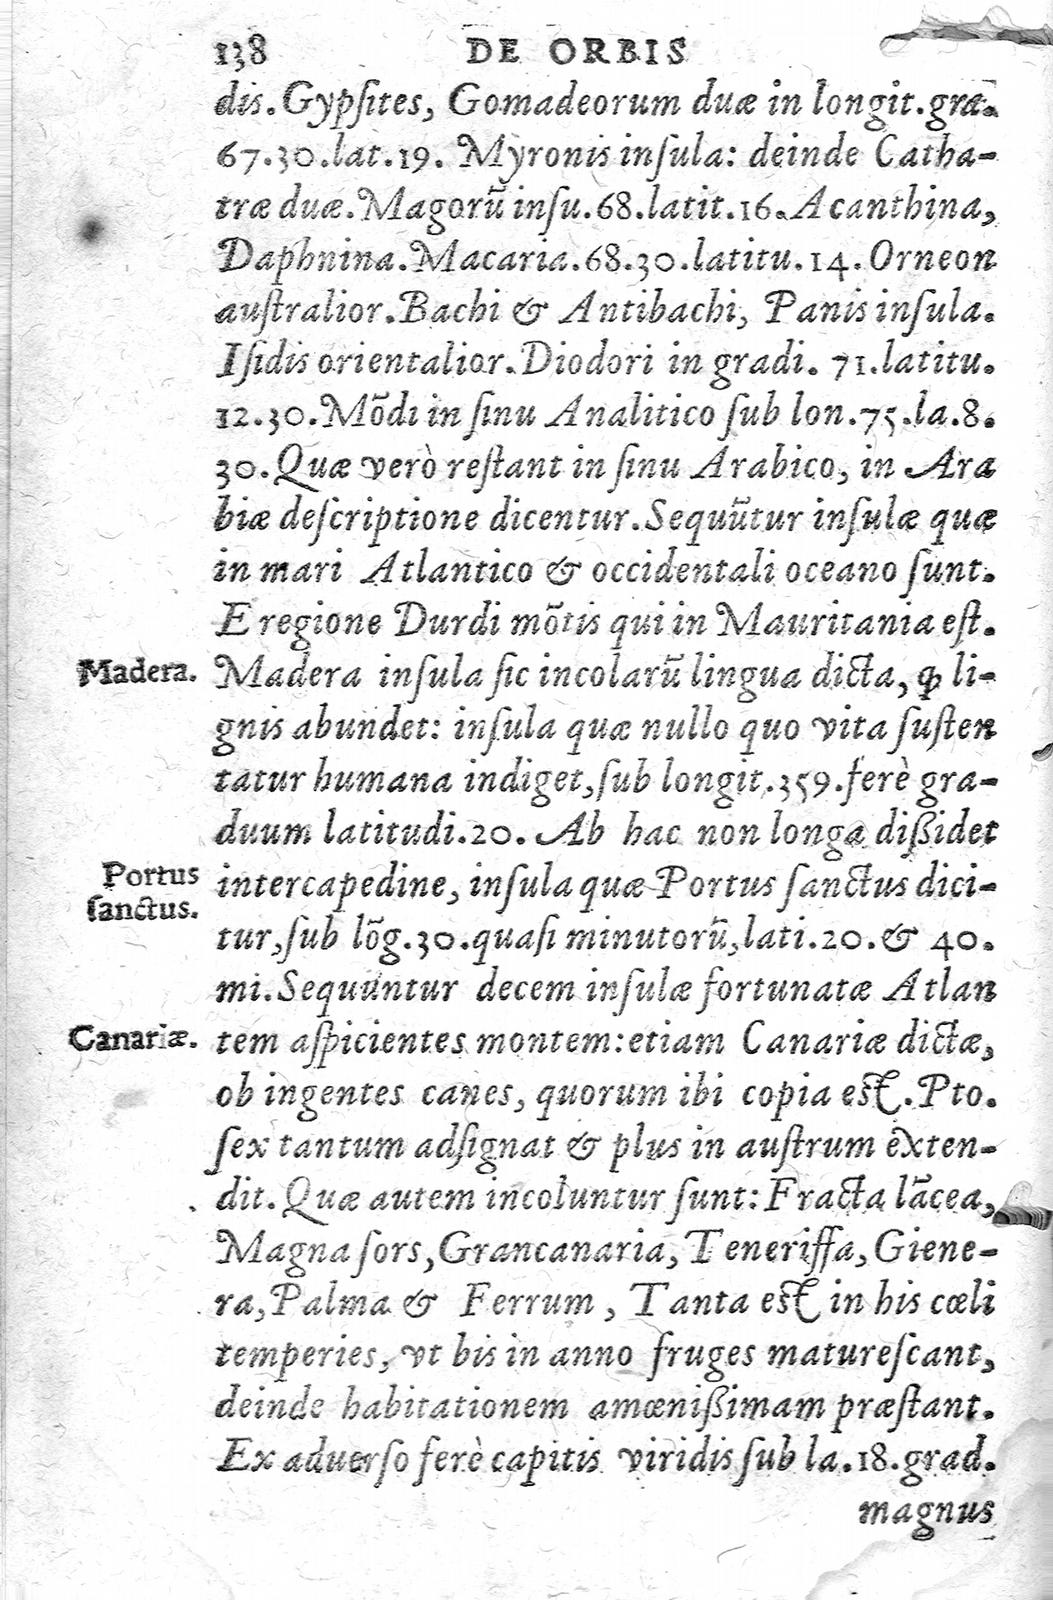 138 DE ORBIS
dis. Gypſites, Gomadeorum duæ in longit. gra.
67.30. lat. 19. Myronis inſula: deinde Catha-
træ duæ. Magorū inſu. 68. latit. 16. Acanthina,
Daphnina. Macaria. 68.30. latitu. 14. Orneon
auſtralior. Bachi & Antibachi, Panis inſula.
Iſidis orientalior. Diodori in gradi. 71. latitu.
12.30. Mōdi in ſinu Analitico ſub lon. 75. la. 8.
30. Quæ verò reſtant in ſinu Arabico, in Ara
biæ deſcriptione dicentur. Sequūtur inſulæ quæ
in mari Atlantico & occidentali oceano ſunt.
E regione Durdi mōtis qui in Mauritania eſt.
Madera. Madera inſula ſic incolarū lingua dicta, ꝙ li-
gnis abundet: inſula quæ nullo quo vita ſuſten
tatur humana indiget, ſub longit. 359. ferè gra-
duum latitudi. 20. Ab hac non longa diſſidet
Portus
ſanctus.
intercapedine, inſula quæ Portus ſanctus dici-
tur, ſub lōg. 30. quaſi minutorū, lati. 20. & 40.
mi. Sequuntur decem inſulæ fortunatæ Atlan
Canariæ. tem aſpicientes montem: etiam Canariæ dictæ,
ob ingentes canes, quorum ibi copia est. Pto.
ſex tantum adſignat & plus in auſtrum exten-
dit. Quæ autem incoluntur ſunt: Fracta lācea,
Magna ſors, Grancanaria, Teneriffa, Giene-
ra, Palma & Ferrum, Tanta est in his cœli
temperies, vt bis in anno fruges matureſcant,
deinde habitationem amœniſſimam præſtant.
Ex aduerſo ferè capitis viridis ſub la. 18. grad.
magnus